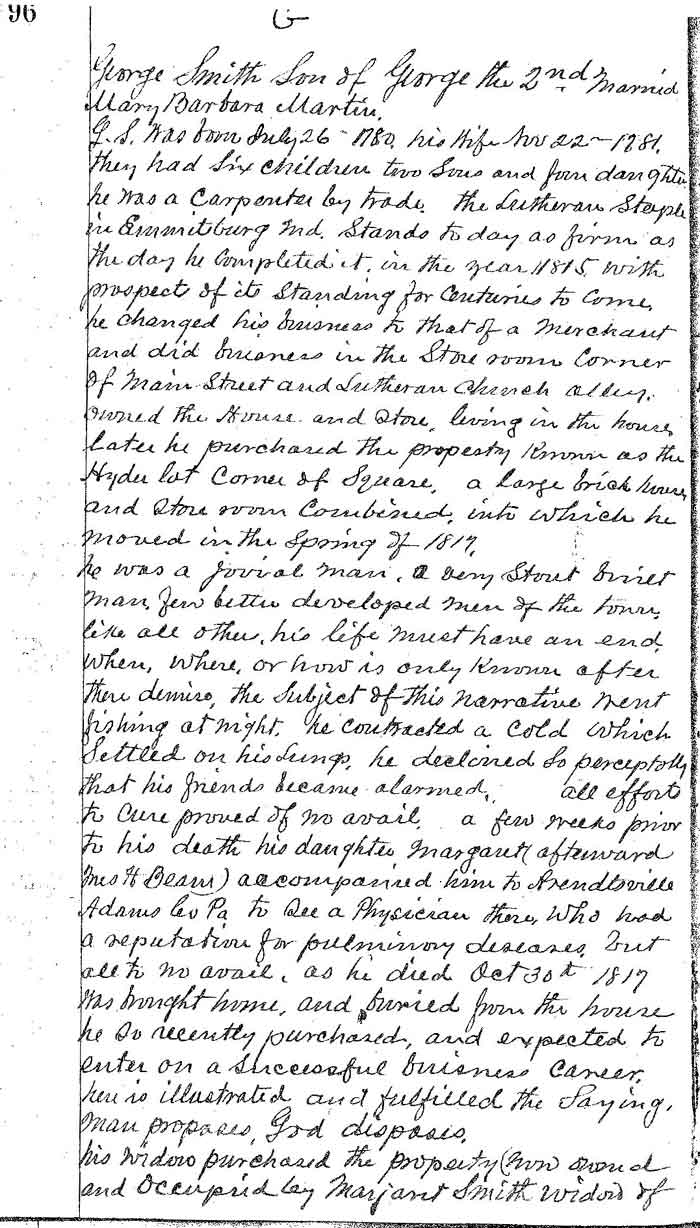 96
G
George Smith Son of George the 2nd Married
Mary Barbara Martin.
G. S. Was born July 26 - 1780, his Wife Nov 22 - 1781.
they had Six children two Sons and four daughters
he was a Carpenter by trade. the Lutheran Steeple
in Emmitsburg Md. Stands to day as firm as
the day he Completed it, in the year 1815, with
prospects of its Standing for Centuries to Come,
he changed his buisness to that of a Merchant
and did buisness in the Store room Corner
of Main Street and Lutheran Church alley.
owned the House and Store, living in the house,
later he purchased the property Known as the
Hyder lot Corner of Square, a large brick house,
and Store room Combined, into which he
moved in the Spring of 1817.
he was a jovial man, a very Stout built
man, few better developed men of the town,
like all others, his life must have an end,
When, Where, or how is only Known after
there demise, the Subject of this narrative went
fishing at night. he contracted a Cold which
Settled on his Lungs, he declined So perceptably
that his friends became alarmed, all efforts
to Cure proved of no avail, a few weeks prior
to his death his daughter Margaret (afterward
Mrs H Beam) accompanied him to Arendtsville
Adams Co Pa to See a Physician there, Who had
a reputation for pulminory deseases, but
all to no avail, as he died Oct 30th 1817
Was brought home, and buried from the house
he So recently purchased, and expected to
enter on a Successful buisness Career,
here is illustrated and fulfilled the Saying,
Man proposes, God disposes,
his widow purchased the property (now owned
and Occupied by Margaret Smith widow of